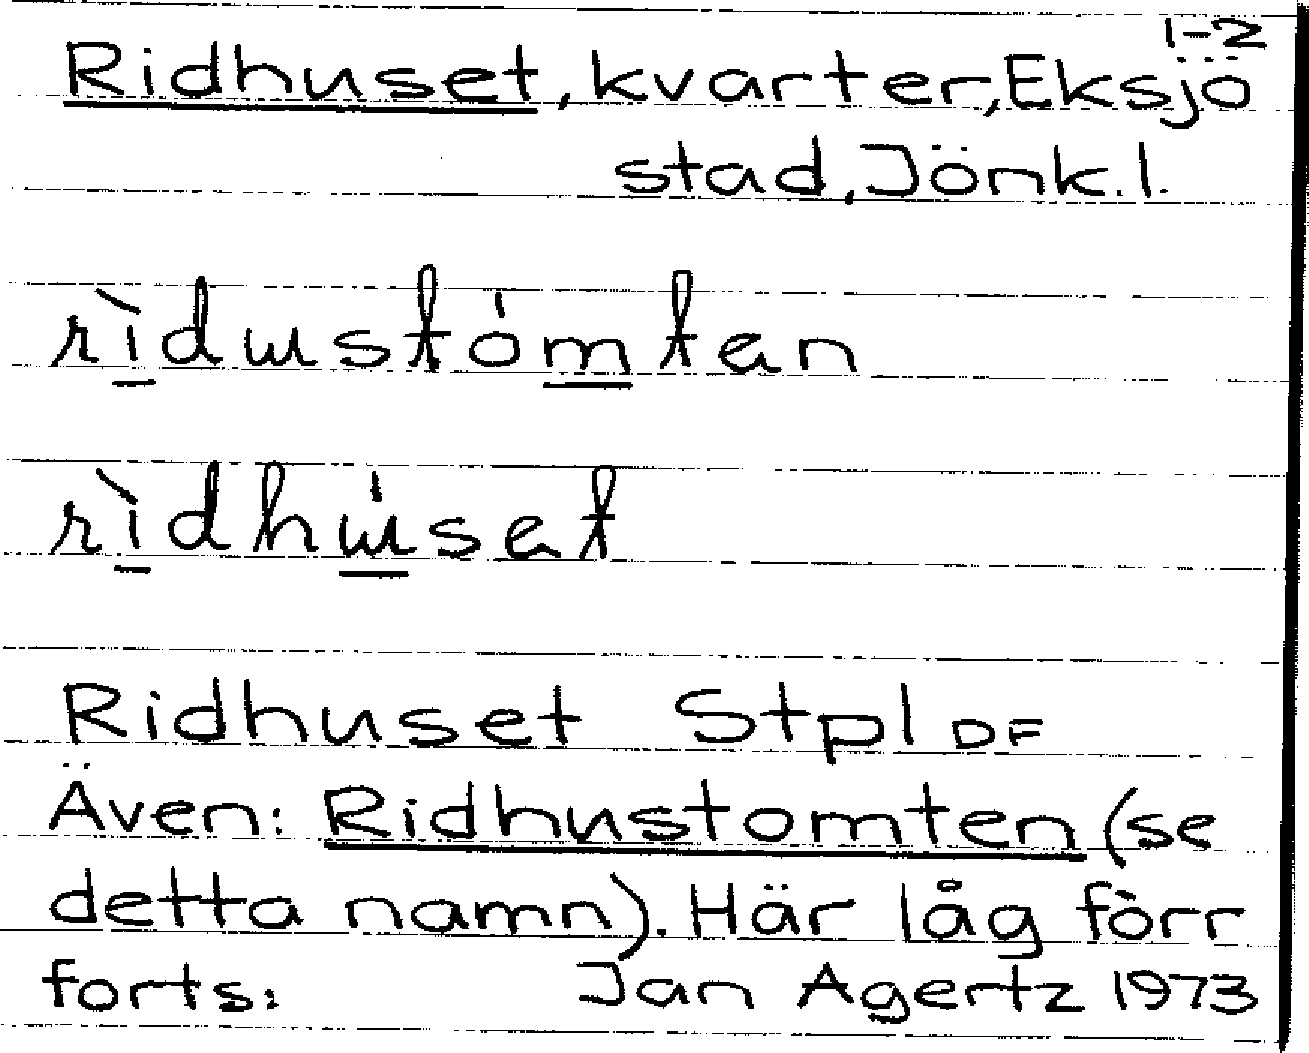 1-2
Ridhuset, kvarter, Eksjö
stad, Jönk. l.
rìdɯstómtan
rìdhɯ́sat
Ridhuset Stpl DF
Även: Ridhustomten (se
detta namn). Här låg förr
forts: Jan Agertz 1973